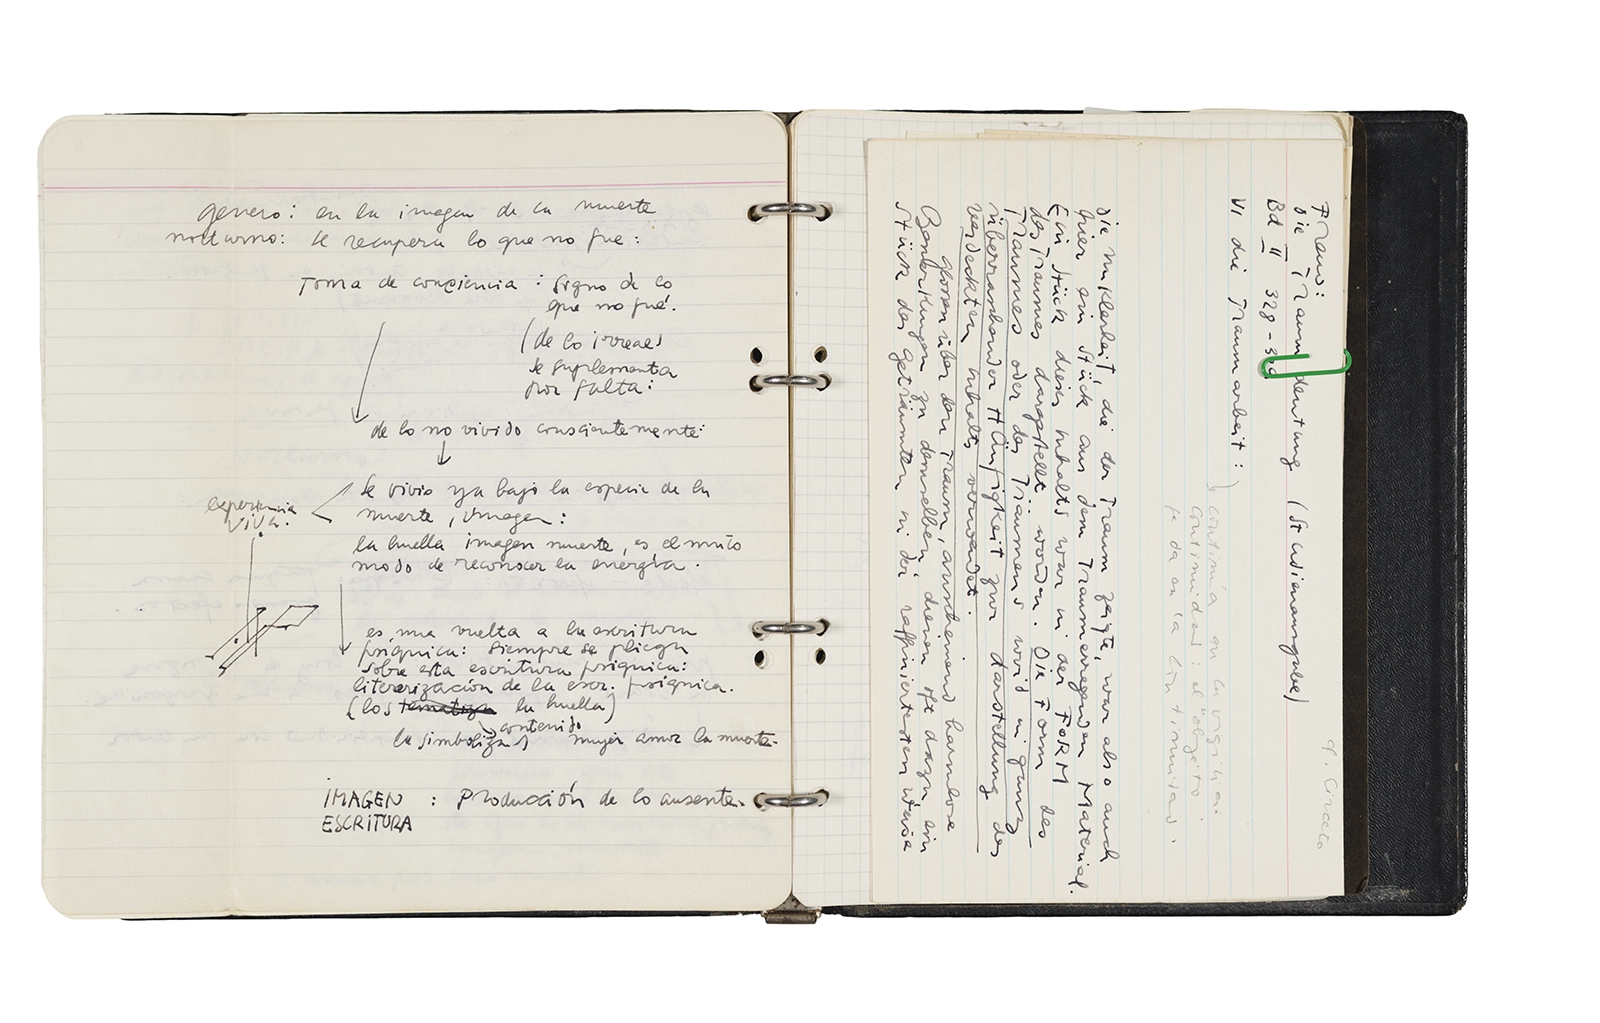 genero: en la imagen de la muerte
nocturno: se recupera lo que no fue:
Toma de conciencia: signo de lo
que no fué.
(de lo irreal)
se suplementa
por falta:
de lo no vivido conscientemente:
experiencia
viva:
se vivio ya bajo la especie de la
muerte, imagen:
la huella imagen muerte, es el
modo de reconocer la energía.
es una vuelta a la escritura
psíquica: siempre se pliega
sobre esta escritura psíquica:
literarización de la escr. psíquica.
(los tematiza la huella)
contenido
la simboliza) mujer amor la muerte.
IMAGEN : Producción de lo ausente.
ESCRITURA
Freud:
Die Traumdeutung (Studienausgabe)
Bd II 328-
cf. Circeto
VI die Traumarbeit:
) continúa en la vigilia:
continuidad: el "objeto"
se da en la continuidad.
die Unklarheit, die der Traum zeigte, war also auch
hier ein Stück aus dem Traumerregenden Material.
Ein Stück dieses Inhalts war in der FORM
des Traumes dargestellt worden. Die Form des
Traumes oder des Träumens wird in ganz
überraschender Häufigkeit zur Darstellung des
verdeckten Inhalts verwendet.
Glossen über den Traum, anscheinend harmlose
Bemerkungen zu demselben, dienen oft dazu, ein
Stück des Geträumten in der raffiniertesten Weise